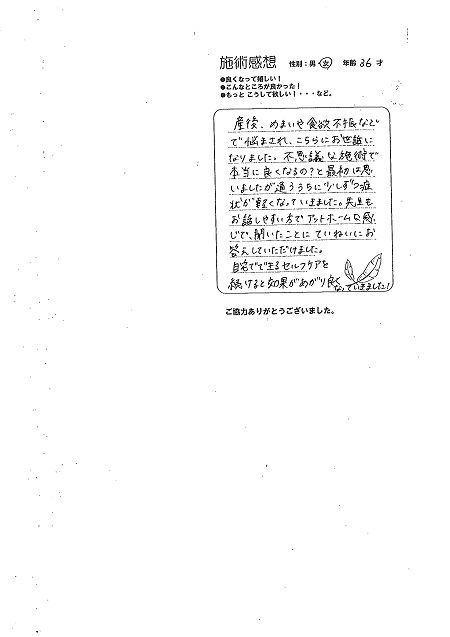 施術感想 性別：男・女 年齢 36 才
●良くなって嬉しい！
●こんなところが良かった！
●もっと こうして欲しい！・・・など。
産後、めまいや食欲不振など
で悩まされ、こちらにお世話に
なりました。不思議な施術で
本当に良くなるの？と最初は思
いましたが通ううちに少しずつ症
状が軽くなっていきました。先生も
お話しやすい方でアットホームな感
じで、聞いたことに ていねいにお
答えしていただけました。
自宅でできるセルフケアを
続けると効果があがり良く
なっていきました！
ご協力ありがとうございました。